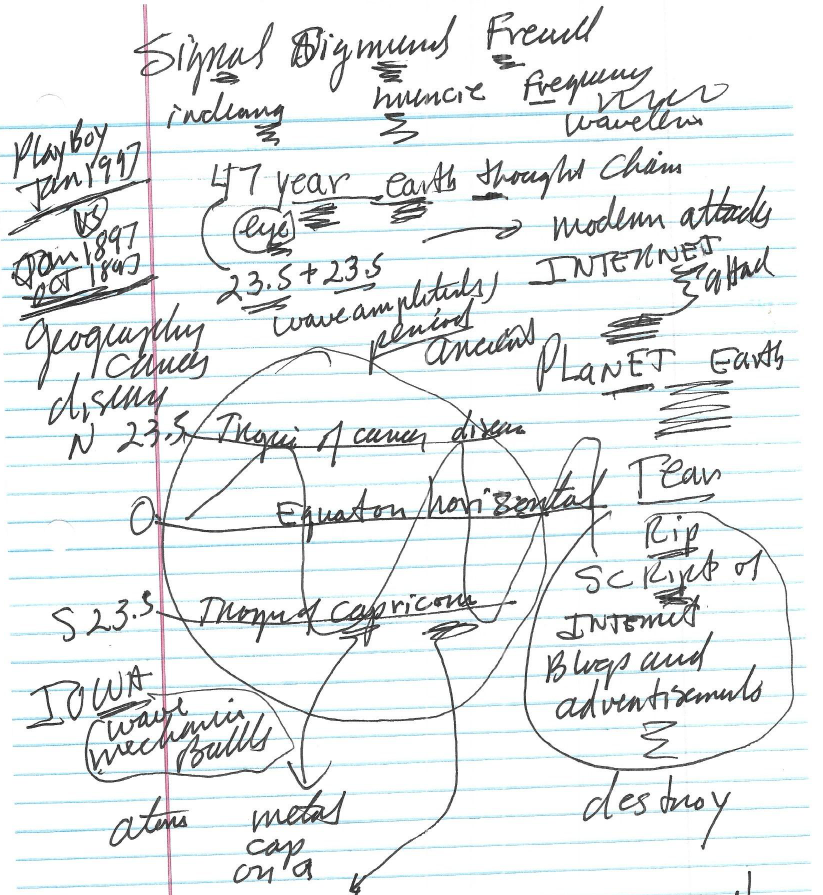 Signal Sigmund Freud
indiana muncie frequency
wavelens
Playboy
Jan 1997
VS
Jan 1897
Oct 1897
47 year earth thought chain
eye
23.5 + 23.5
modern attacks
INTERNET
attack
wave amplitude,
period
ancient
Geography
cancer
disease
PLANET Earth
N 23.5 Tropic of cancer disease
0 Equator horizontal
S 23.5 Tropic of capricorn
Tear
Rip
SCRipt of
INTERNET
Blogs and
advertisements
destroy
IOWA
wave
mechanic
Balls
atoms
metal
cap
on a